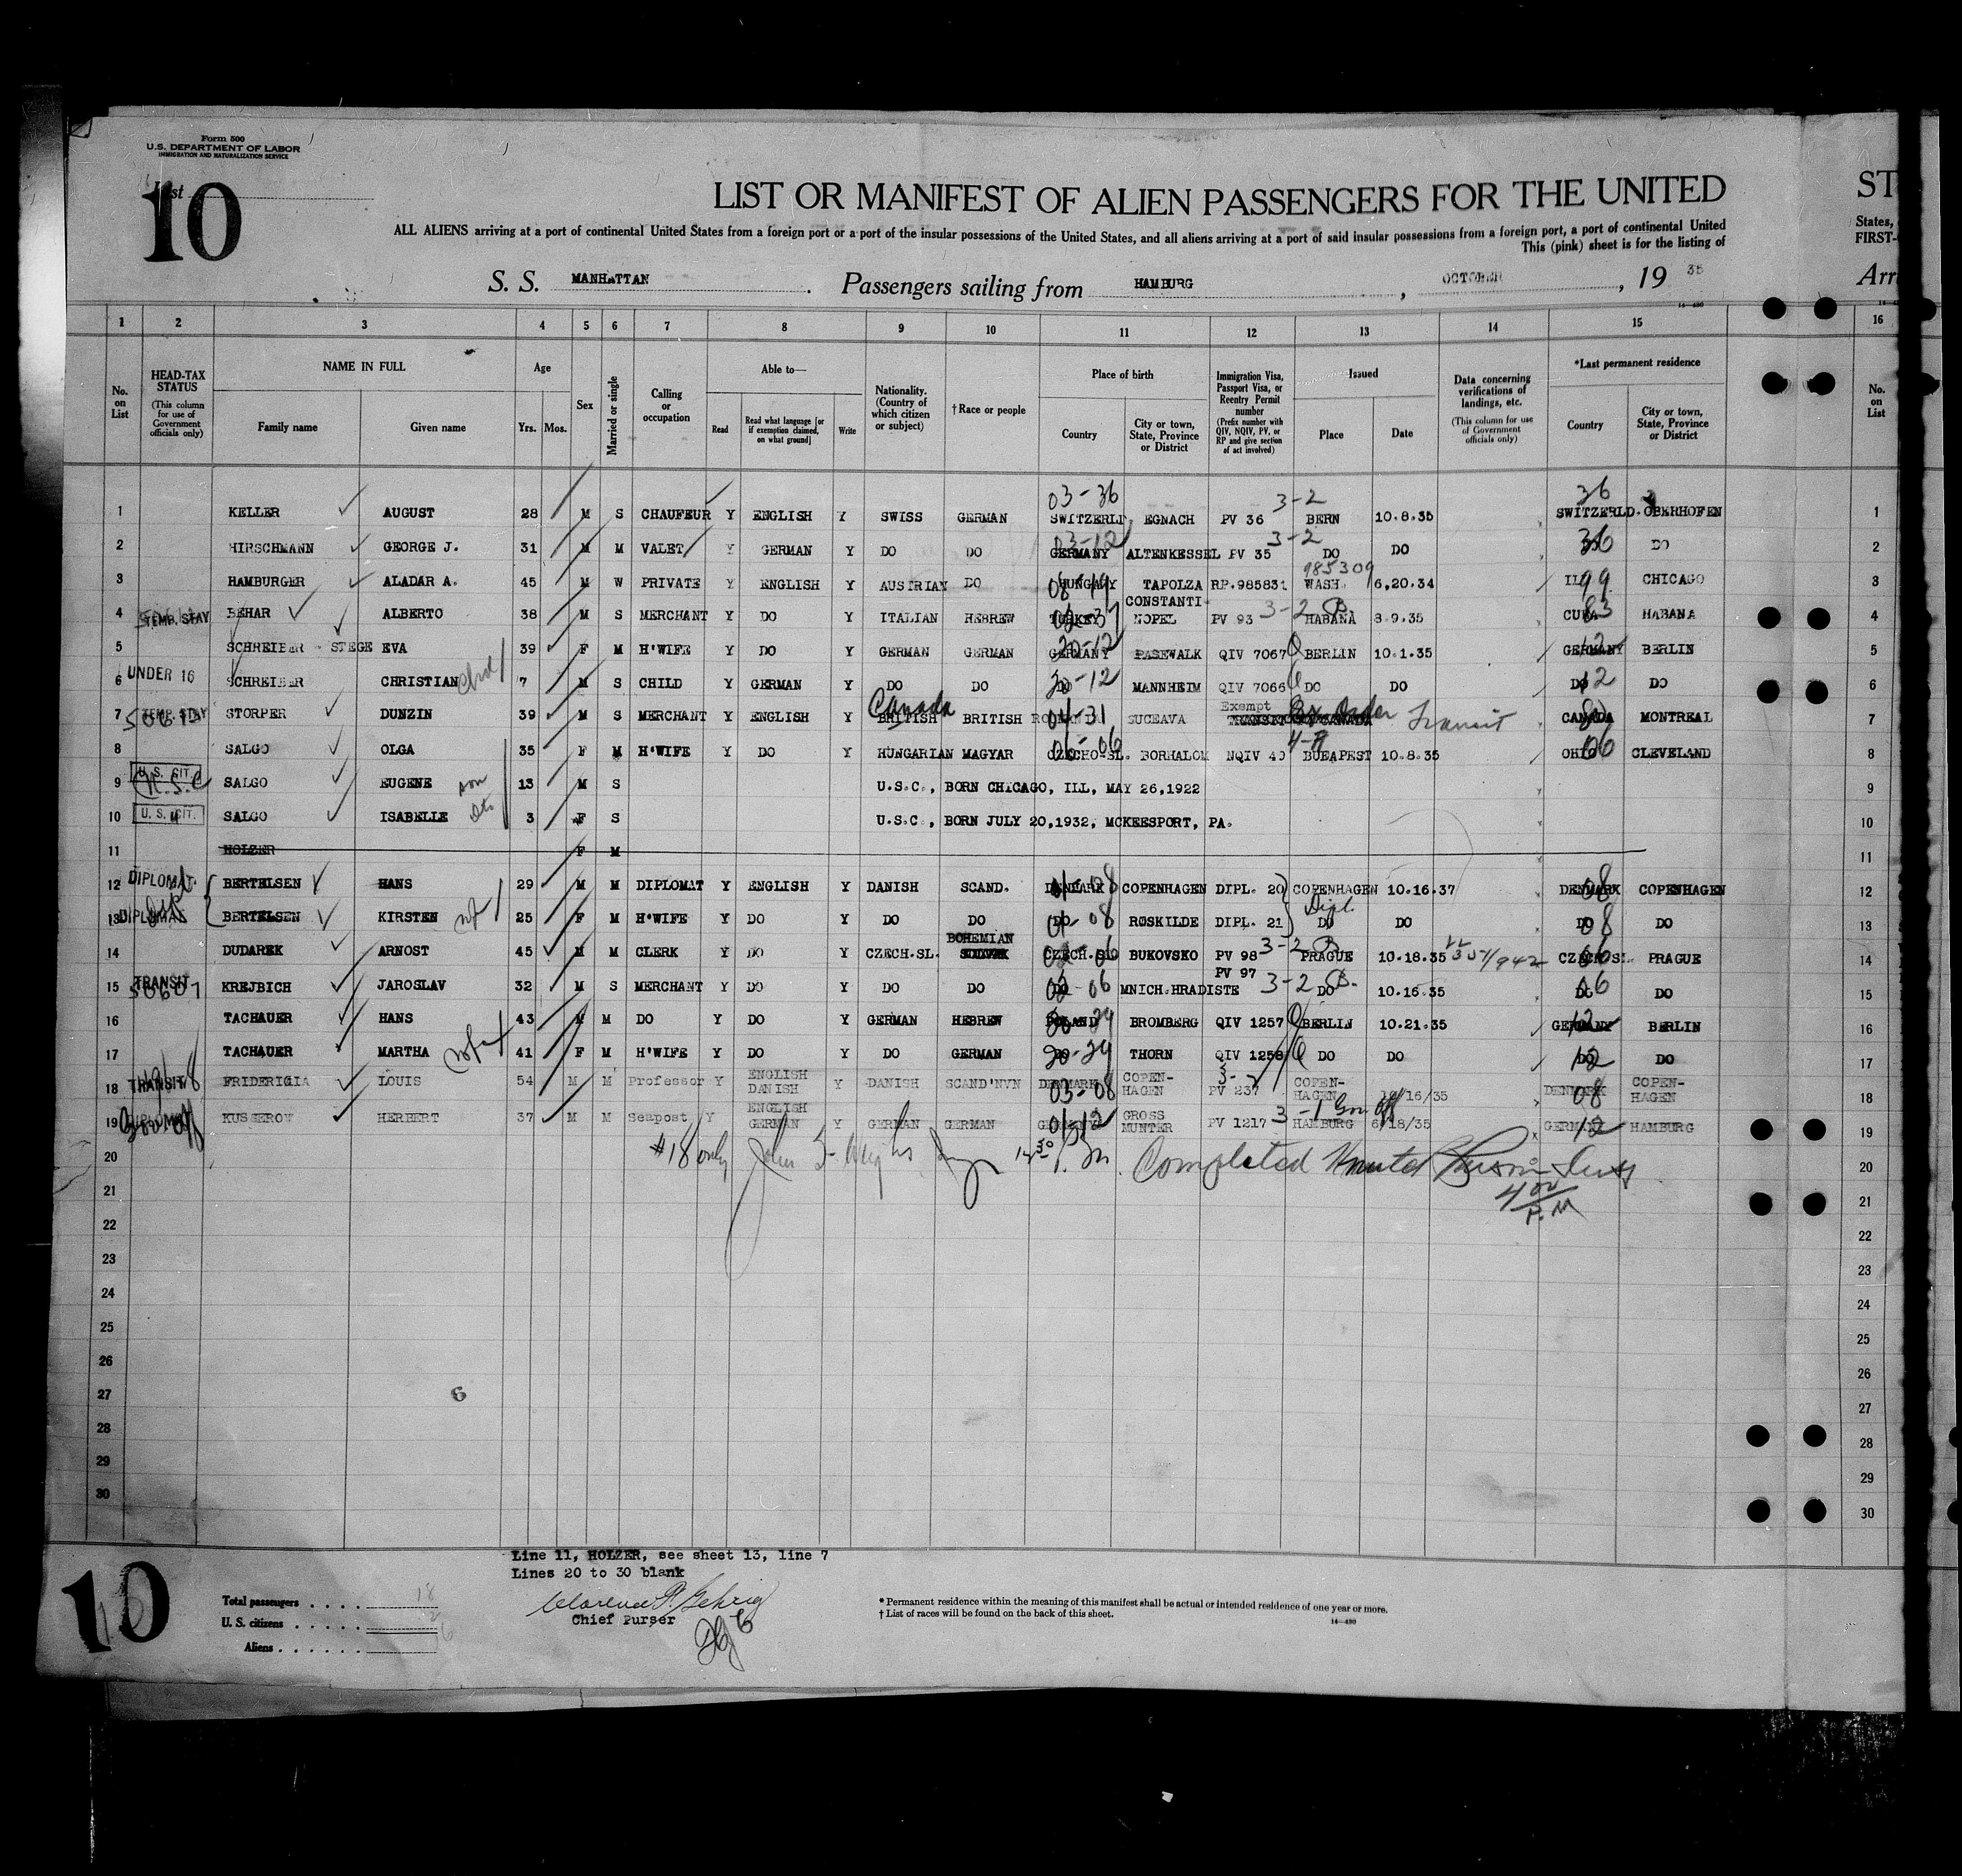 Form 500
U.S. DEPARTMENT OF LABOR
IMMIGRATION AND NATURALIZATION SERVICE
List 10
LIST OR MANIFEST OF ALIEN PASSENGERS FOR THE UNITED ST
ALL ALIENS arriving at a port of continental United States from a foreign port or a port of the insular possessions of the United States, and all aliens arriving at a port of said insular possessions from a foreign port, a port of continental United States,
This (pink) sheet is for the listing of FIRST-
S. S. MANHATTAN . Passengers sailing from HAMBURG , OCTOBER , 19 35 Arri
14-480
1 2 3 4 5 6 7 8 9 10 11 12 13 14 15 16
No. on List
HEAD-TAX STATUS (This column for use of Government officials only)
NAME IN FULL
Family name Given name
Age
Yrs. Mos.
Sex
Married or single
Calling or occupation
Able to—
Read Read what language [or if exemption claimed, on what ground] Write
Nationality. (Country of which citizen or subject)
†Race or people
Place of birth
Country City or town, State, Province or District
Immigration Visa, Passport Visa, or Reentry Permit number (Prefix number with QIV, NQIV, PV, or RP and give section of act involved)
Issued
Place Date
Data concerning verifications of landings, etc. (This column for use of Government officials only)
*Last permanent residence
Country City or town, State, Province or District
No. on List
03-36 3-2 36
1 KELLER AUGUST 28 M S CHAUFEUR Y ENGLISH Y SWISS GERMAN SWITZERLD EGNACH PV 36 BERN 10.8.35 SWITZERLD. OBERHOFEN 1
03-12 3-2 36
2 HIRSCHMANN GEORGE J. 31 M M VALET Y GERMAN Y DO DO GERMANY ALTENKESSEL PV 35 DO DO DO 2
985309
3 HAMBURGER ALADAR A. 45 M W PRIVATE Y ENGLISH Y AUSTRIAN DO HUNGARY 08-19 TAPOLZA RP.985831 WASH. 6.20.34 ILL 99 CHICAGO 3
4 TEMP. STAY BEHAR ALBERTO 38 M S MERCHANT Y DO Y ITALIAN HEBREW TURKEY CONSTANTINOPEL PV 93 3-2 HABANA 8.9.35 CUBA 83 HABANA 4
5 SCHREIBER - STEGE EVA 39 F M H'WIFE Y DO Y GERMAN GERMAN GERMANY 20-12 PASEWALK QIV 7067 BERLIN 10.1.35 GERMANY 12 BERLIN 5
6 UNDER 16 SCHREIBER CHRISTIAN child 7 M S CHILD Y GERMAN Y DO DO DO 20-12 MANNHEIM QIV 7066 DO DO DO 12 DO 6
Canada Exempt Ex Order Transit
7 TEMP. STAY STORPER DUNZIN 39 M S MERCHANT Y ENGLISH Y BRITISH BRITISH 04-31 SUCEAVA CANADA MONTREAL 7
8 SALGO OLGA 35 F M H'WIFE Y DO Y HUNGARIAN MAGYAR CZECHO-SL. 06-06 BORHALOM NQIV 40 BUEAPEST 10.8.35 OHIO 06 CLEVELAND 8
9 U. S. CIT. U.S.C SALGO EUGENE son 13 M S U.S.C., BORN CHICAGO, ILL, MAY 26,1922 9
10 U. S. CIT. SALGO ISABELLE 3 F S U.S.C., BORN JULY 20,1932, MCKEESPORT, PA. 10
11 HOLZER F M 11
12 DIPLOMAT. BERTELSEN HANS 29 M M DIPLOMAT Y ENGLISH Y DANISH SCAND. DENMARK 01-08 COPENHAGEN DIPL. 20 COPENHAGEN 10.16.37 DENMARK 08 COPENHAGEN 12
Dipl.
13 DIPLOMAT BERTELSEN KIRSTEN wf 25 F M H'WIFE Y DO Y DO DO DO 01-08 ROSKILDE DIPL. 21 DO DO DO 08 DO 13
BOHEMIAN
14 DUDAREK ARNOST 45 M M CLERK Y DO Y CZECH.SL. CZECH.SLO BUKOVSKO PV 98 3-2 PRAGUE 10.18.35 CZECH.SL. 06 PRAGUE 14
PV 97
15 TRANSIT 50607 KREJBICH JAROSLAV 32 M S MERCHANT Y DO Y DO DO DO 02-06 MNICH.HRADISTE 3-2 DO 10.15.35 DO 06 DO 15
16 TACHAUER HANS 43 M M DO Y DO Y GERMAN HEBREW POLAND BROMBERG QIV 1257 BERLIN 10.21.35 GERMANY 12 BERLIN 16
17 TACHAUER MARTHA wf 41 F M H'WIFE Y DO Y DO GERMAN DO 20-29 THORN QIV 1258 DO DO DO 12 DO 17
18 TRANSIT FRIDERICIA LOUIS 54 M M Professor Y ENGLISH DANISH Y DANISH SCAND'NVN DENMARK 03-08 COPENHAGEN PV 237 COPENHAGEN 10/16/35 DENMARK 08 COPENHAGEN 18
19 DIPLOMAT KUSSEROW HERBERT 37 M M Seapost Y ENGLISH GERMAN Y GERMAN GERMAN GERMANY 01-12 GROSS MUNTER PV 1217 3-1 HAMBURG 6/18/35 GERMANY 12 HAMBURG 19
20 #18 only Completed 20
21 4 00 P.M 21
22 22
23 23
24 24
25 25
26 26
27 6 27
28 28
29 29
30 30
Line 11, HOLZER, see sheet 13, line 7
Lines 20 to 30 blank
10
Total passengers . . . . 18
U. S. citizens . . . . . . 2
Aliens . . . . . . . 16
Clarence P. Gehrig
Chief Purser
* Permanent residence within the meaning of this manifest shall be actual or intended residence of one year or more.
† List of races will be found on the back of this sheet.
14-480